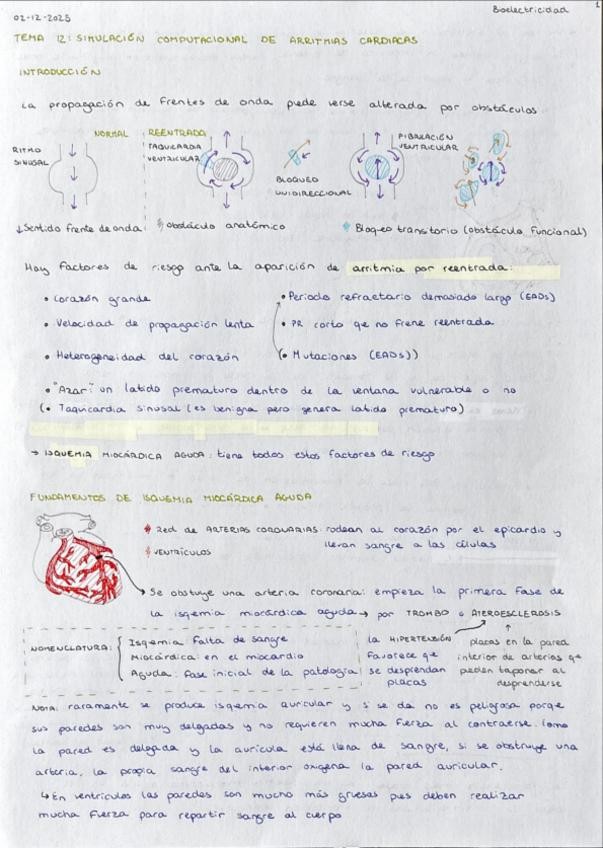 Bioelectricidad
1
02-12-2025
TEMA 12: SIMULACIÓN COMPUTACIONAL DE ARRITMIAS CARDIACAS
INTRODUCCIÓN
La propagación de frentes de onda puede verse alterada por obstáculos
NORMAL
REENTRADA
RITMO SINUSAL
TAQUICARDIA VENTRICULAR
BLOQUEO UNIDIRECCIONAL
FIBRILACIÓN VENTRICULAR
↓ Sentido frente de onda
Obstáculo anatómico
Bloqueo transitorio (obstáculo funcional)
Hay factores de riesgo ante la aparición de arritmia por reentrada:
• Corazón grande
• Velocidad de propagación lenta
• Heterogeneidad del corazón
• Periodo refractario demasiado largo (EADs)
• PR corto qe no frene reentrada
(• Mutaciones (EADs))
• "Azar": un latido prematuro dentro de la ventana vulnerable o no
(• Taquicardia sinusal (es benigna pero genera latido prematuro)
→ ISQUEMIA MIOCÁRDICA AGUDA: tiene todos estos factores de riesgo
FUNDAMENTOS DE ISQUEMIA MIOCÁRDICA AGUDA
Red de ARTERIAS CORONARIAS: rodean al corazón por el epicardio y
llevan sangre a las células
VENTRÍCULOS
Se obstuye una arteria coronaria: empieza la primera fase de
la isqemia miocárdica aguda → por TROMBO o ATEROESCLEROSIS
NOMENCLATURA:
Isqemia: falta de sangre
Miocárdica: en el miocardio
Aguda: fase inicial de la patología
la HIPERTENSIÓN
favorece qe
se desprendan
placas
placas en la pared
interior de arterias qe
pueden taponar al
desprenderse
NOTA: raramente se produce isqemia auricular y si se da no es peligrosa porqe
sus paredes son muy delgadas y no requieren mucha fuerza al contraerse. Como
la pared es delgada y la aurícula está llena de sangre, si se obstruye una
arteria, la propia sangre del interior oxigena la pared auricular.
↳ En ventrículos las paredes son mucho más gruesas pues deben realizar
mucha fuerza para repartir sangre al cuerpo